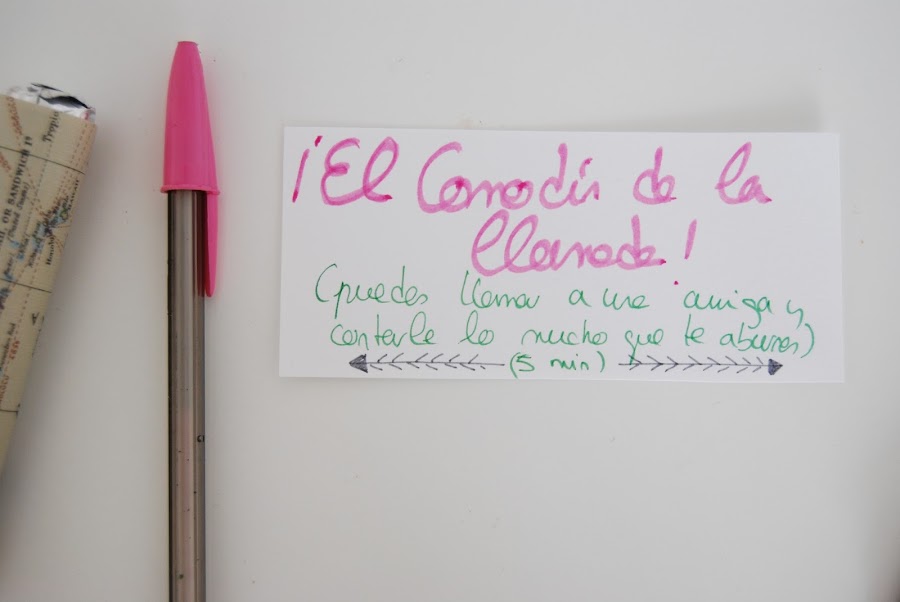 ¡El Comodín de la
llamada!
(puedes llamar a una amiga y
contarle lo mucho que te aburres)
(5 min)
OR SANDWICH Iˢ
Tropic